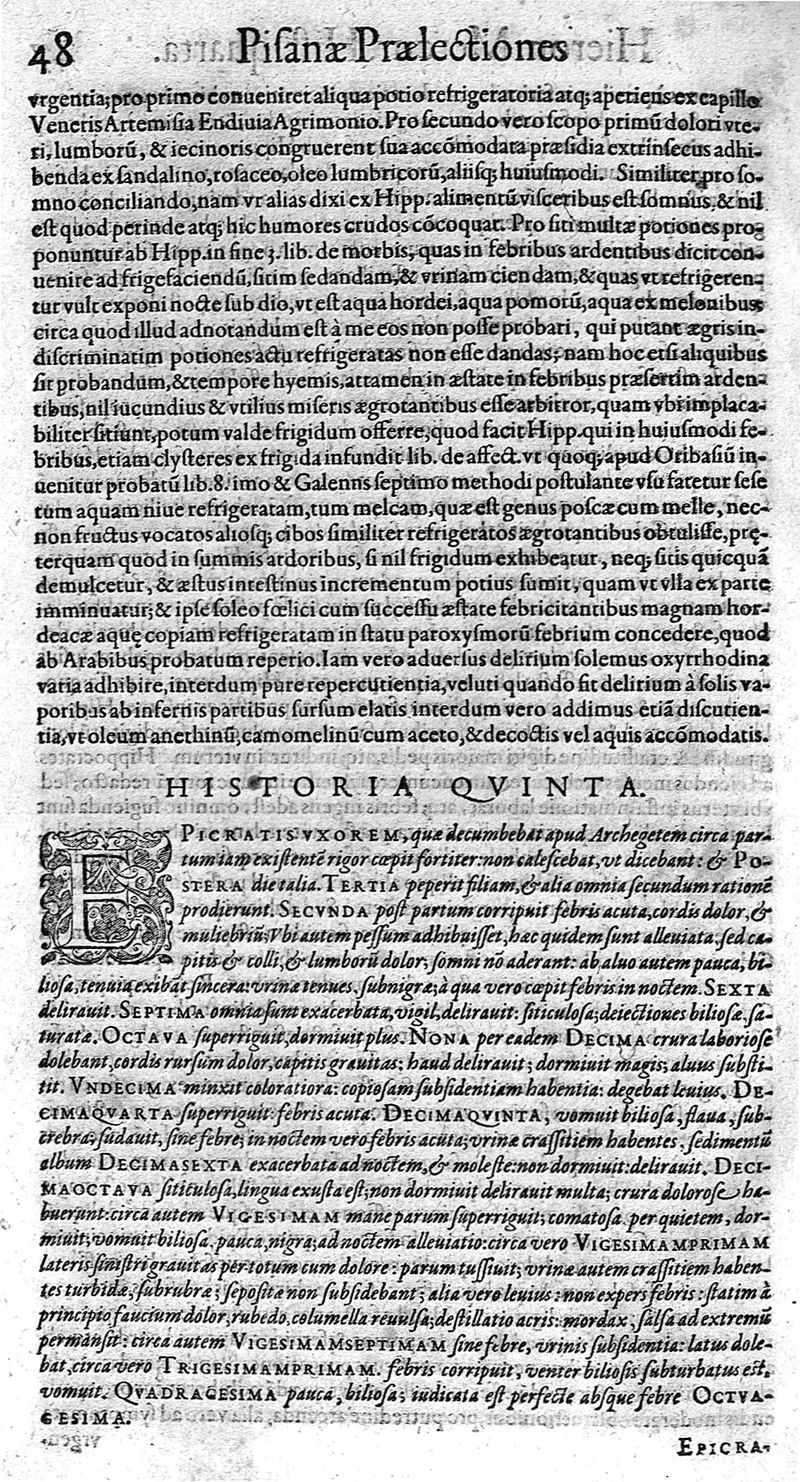 48 Pisanæ Prælectiones
vrgentia; pro primo conueniret aliqua potio refrigeratoria atq; aperiens ex capillo
Veneris Artemisia Endiuia Agrimonio. Pro secundo vero scopo primũ dolori vte-
ri, lumborũ, & iecinoris congruerent sua accõmodata præsidia extrinsecus adhi-
benda ex sandalino, rosaceo, oleo lumbricorũ, aliisq; huiusmodi. Similiter pro so-
mno conciliando, nam vt alias dixi ex Hipp. alimentũ visceribus est somnus, & nil
est quod perinde atq; hic humores crudos cõcoquat. Pro siti multæ potiones pro-
ponuntur ab Hipp. in fine 3. lib. de morbis, quas in febribus ardentibus dicit con-
uenire ad frigefaciendũ, sitim sedandam, & vrinam ciendam, & quas vt refrigeren-
tur vult exponi nocte sub dio, vt est aqua hordei, aqua pomorũ, aqua ex melonibus
circa quod illud adnotandum est à me eos non posse probari, qui putant ægris in-
discriminatim potiones actu refrigeratas non esse dandas; nam hoc etsi aliquibus
sit probandum, & tempore hyemis, attamen in æstate in febribus præsertim arden-
tibus, nil iucundius & vtilius miseris ægrotantibus esse arbitror, quam vbi implaca-
biliter sitiunt, potum valde frigidum offerre, quod facit Hipp. qui in huiusmodi fe-
bribus, etiam clysteres ex frigida infundit lib. de affect. vt quoq; apud Oribasiũ in-
uenitur probatũ lib. 8. imo & Galenus septimo methodi postulante vsu fatetur sese
tum aquam niue refrigeratam, tum melcam, quæ est genus poscæ cum melle, nec-
non fructus vocatos aliosq; cibos similiter refrigeratos ægrotantibus obtulisse, prę-
terquam quod in summis ardoribus, si nil frigidum exhibeatur, neq; sitis quicquã
demulcetur, & æstus intestinus incrementum potius sumit, quam vt vlla ex parte
imminuatur; & ipse soleo fœlici cum successu æstate febricitantibus magnam hor-
deacæ aquę copiam refrigeratam in statu paroxysmorũ febrium concedere, quod
ab Arabibus probatum reperio. Iam vero aduersus delirium solemus oxyrrhodina
varia adhibire, interdum pure repercutientia, veluti quando fit delirium à solis va-
poribus ab infernis partibus sursum elatis interdum vero addimus etiã discutien-
tia, vt oleum anethinũ, camomelinũ cum aceto, & decoctis vel aquis accõmodatis.
HISTORIA QVINTA.
EPICRATIS VXOREM, quæ decumbebat apud Archegetem circa par-
tum iam existentẽ rigor cœpit fortiter: non calescebat, vt dicebant: & PO-
STERA die talia. TERTIA peperit filiam, & alia omnia secundum rationẽ
prodierunt. SECVNDA post partum corripuit febris acuta, cordis dolor, &
muliebriũ; Vbi autem pessum adhibuisset, hæc quidem sunt alleuiata, sed ca-
pitis & colli, & lumborũ dolor; somni nõ aderant: ab aluo autem pauca, bi-
liosa, tenuia exibãt sincera: vrinæ tenues, subnigræ; à qua vero cœpit febris in noctem. SEXTA
delirauit. SEPTIMA omnia sunt exacerbata, vigil, delirauit: siticulosa; deiectiones biliosæ, sa-
turatæ. OCTAVA superriguit, dormiuit plus. NONA per eadem DECIMA crura laboriose
dolebant, cordis rursum dolor, capitis grauitas: haud delirauit; dormiuit magis; aluus substi-
tit. VNDECIMA minxit coloratiora: copiosam subsidentiam habentia: degebat leuius. DE-
CIMAQVARTA superriguit: febris acuta. DECIMAQVINTA, vomuit biliosa, flaua, sub-
crebra; sudauit, sine febre; in noctem vero febris acuta; vrinæ crassitiem habentes, sedimentũ
album DECIMASEXTA exacerbata ad noctem, & moleste: non dormiuit: delirauit. DECI-
MAOCTAVA siticulosa, lingua exusta est; non dormiuit delirauit multa; crura dolorose ha-
buerunt: circa autem VIGESIMAM mane parum superriguit; comatosa, per quietem, dor-
miuit; vomuit biliosa, pauca, nigra; ad noctem alleuiatio: circa vero VIGESIMAMPRIMAM
lateris sinistri grauitas per totum cum dolore: parum tussiuit; vrinæ autem crassitiem haben-
tes turbidæ, subrubræ; sepositæ non subsidebant; alia vero leuius: non expers febris: statim à
principio faucium dolor, rubedo, columella reuulsa; destillatio acris: mordax, salsa ad extremũ
permansit: circa autem VIGESIMAMSEPTIMAM sine febre, vrinis subsidentia: latus dole-
bat, circa vero TRIGESIMAMPRIMAM. febris corripuit, venter biliosis subturbatus est.
vomuit. QVADRAGESIMA pauca, biliosa; iudicata est perfecte absque febre OCTVA-
GESIMA.
EPICRA-